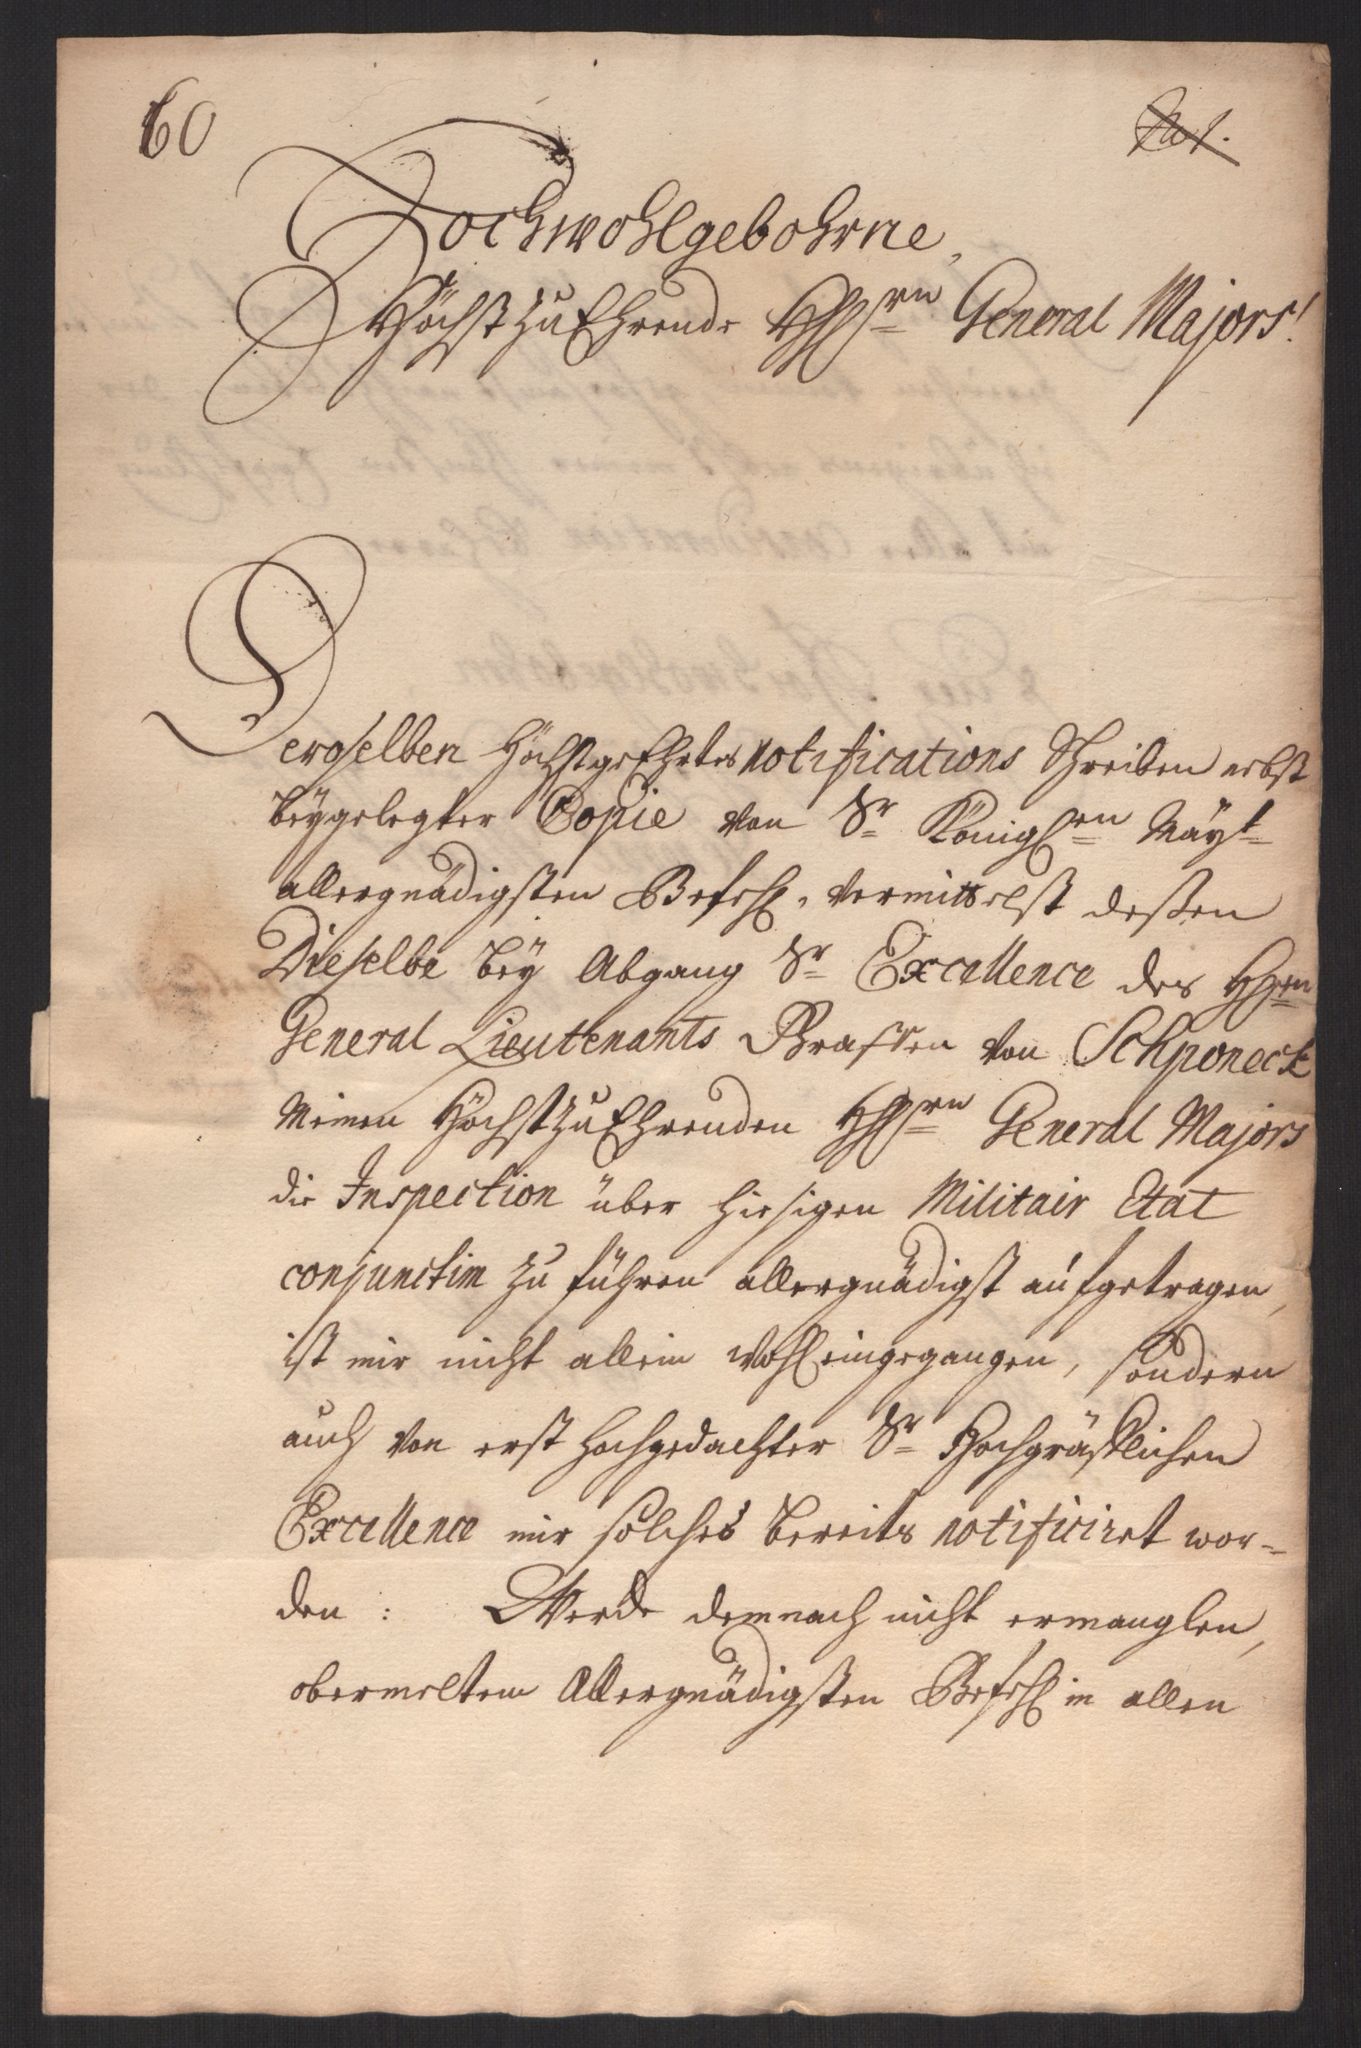 60
Hochwohlgebohrne,
HöchstzuEhrende HHrn General Majors!
Deroselben HöchstgeEhrtes notifications Schreiben nebst
beygelegter Copie von Sr Königlen Mäyt
allergnädigsten Befehl, vermittelst deßen
Dieselbe bey Abgang Sr Excellence des HErrn
General Lieutenants Graffen von Schponeck
Meinen HöchstzuEhrenden HHrn General Majors
die Inspection über hiesigen Militair Etat
conjunctim zu führen allergnädigst aufgetragen,
ist mir nicht allein wohl eingegangen, sondern
auch von erst hochgedachter Sr Hochgräfflichen
Excellence mir solches bereits notificiret wor-
den: Werde demnach nicht ermanglen,
obermeltem Allergnädigsten Befehl in allen